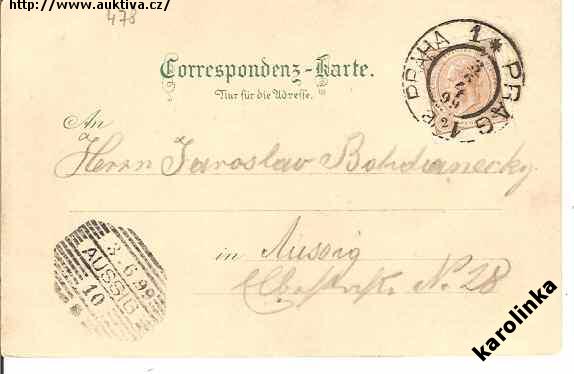 http://www.auktiva.cz/
478
PRAHA 1 * PRAG 1
Correspondenz-Karte.
Nur für die Adresse.
An
Herrn Jaroslav Bohdanecky
in Aussig
N. 28
3.6.99
AUSSIG
10
karolinka